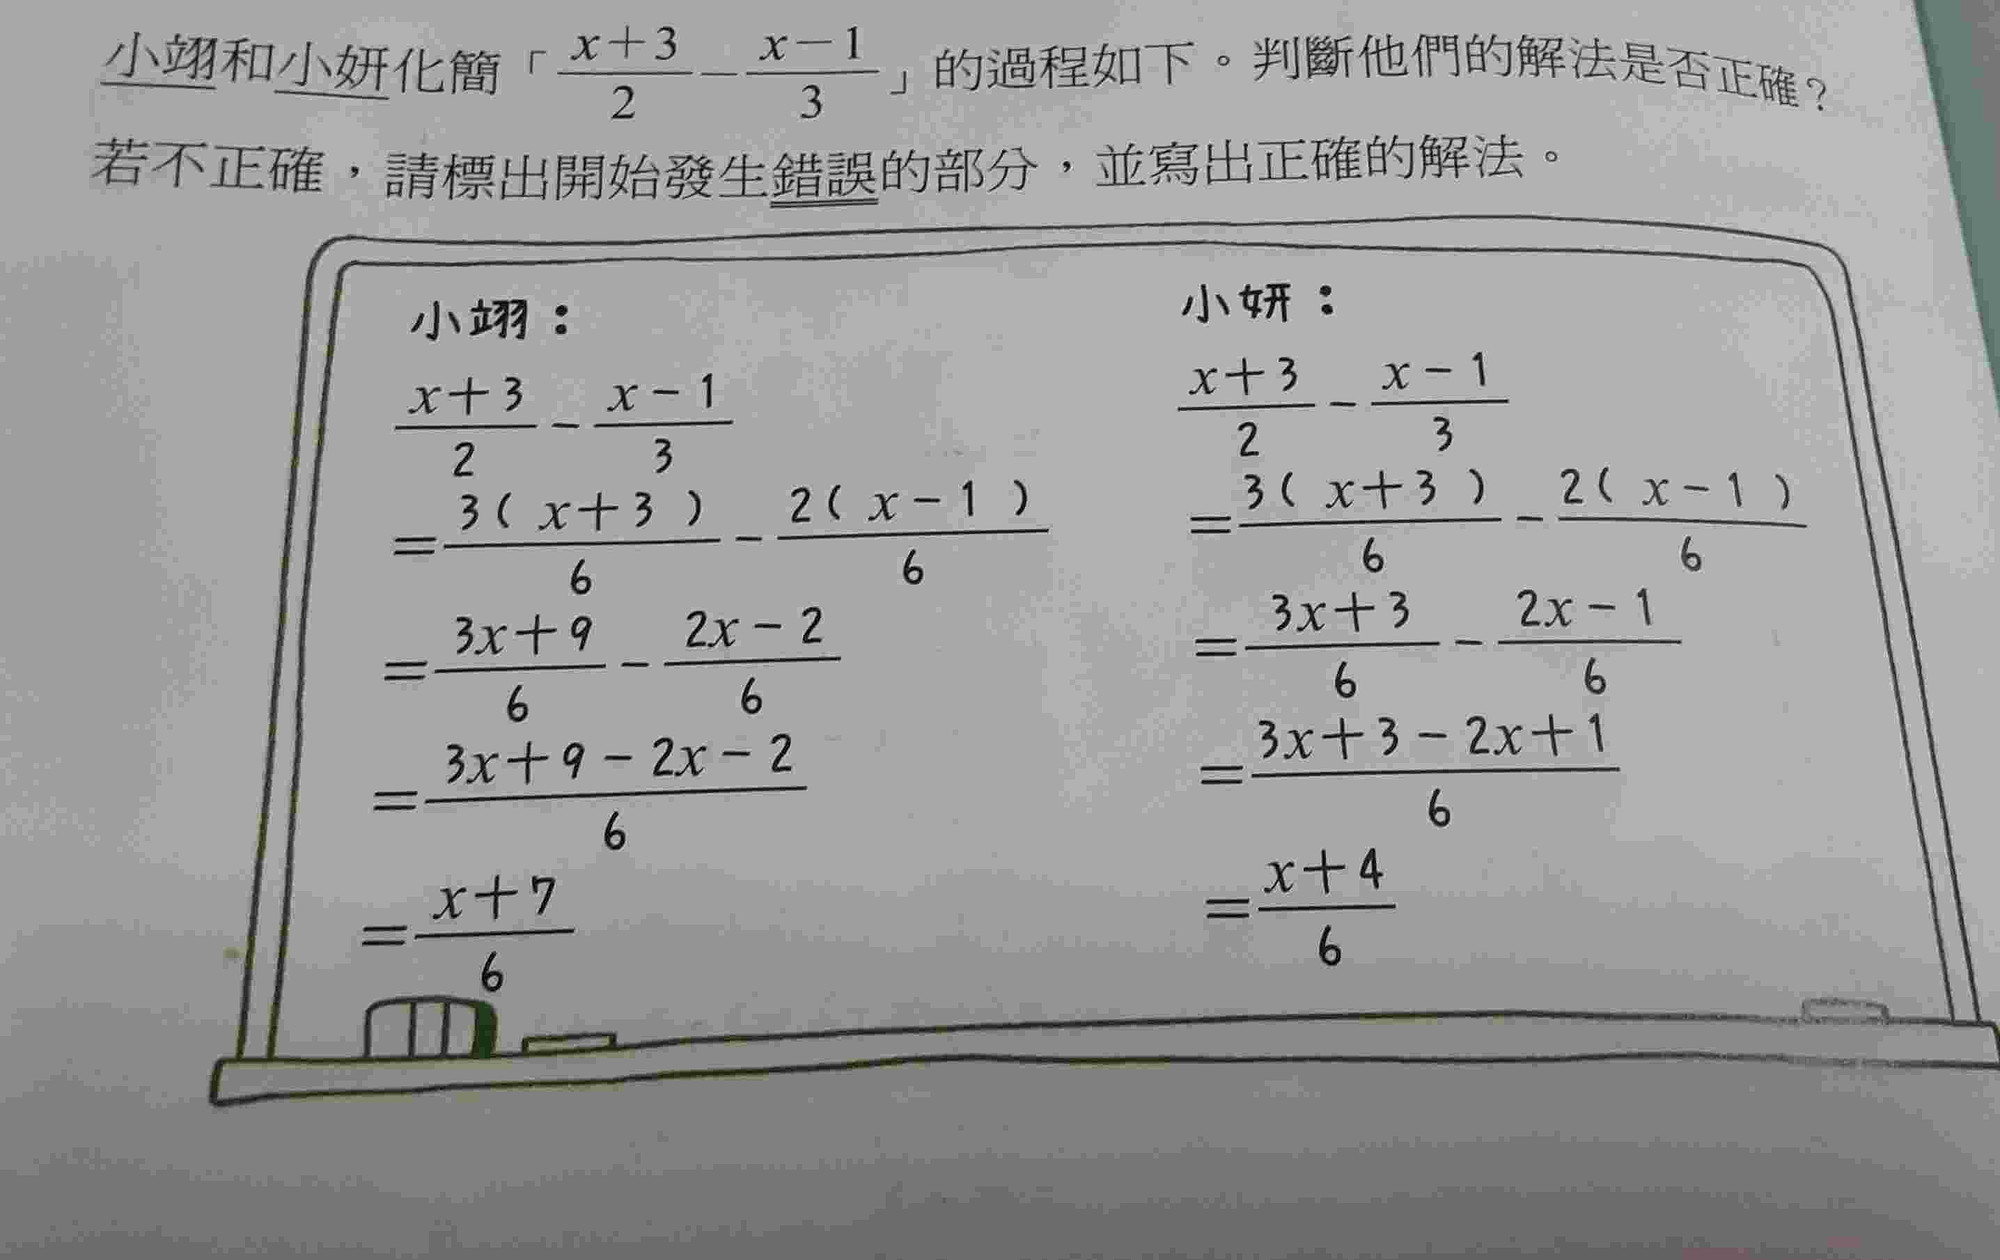 小翊和小妍化簡「(x+3)/2－(x－1)/3」的過程如下。判斷他們的解法是否正確?
若不正確，請標出開始發生錯誤的部分，並寫出正確的解法。
小翊：
(x+3)/2－(x－1)/3
=3(x+3)/6－2(x－1)/6
=(3x+9)/6－(2x－2)/6
=(3x+9－2x－2)/6
=(x+7)/6
小妍：
(x+3)/2－(x－1)/3
=3(x+3)/6－2(x－1)/6
=(3x+3)/6－(2x－1)/6
=(3x+3－2x+1)/6
=(x+4)/6